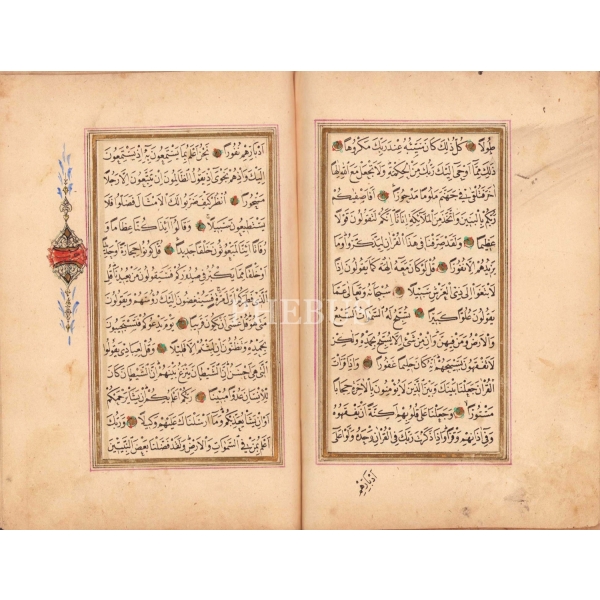 طُولًا كُلُّ ذٰلِكَ كَانَ سَيِّئُهُ عِنْدَ رَبِّكَ مَكْرُوهًا
ذٰلِكَ مِمَّا اَوْحٰى اِلَيْكَ رَبُّكَ مِنَ الْحِكْمَةِ وَلَا تَجْعَلْ مَعَ اللّٰهِ اِلٰهًا
اٰخَرَ فَتُلْقٰى فِي جَهَنَّمَ مَلُومًا مَدْحُورًا اَفَاَصْفٰيكُمْ
رَبُّكُمْ بِالْبَنِينَ وَاتَّخَذَ مِنَ الْمَلٰئِكَةِ اِنَاثًا اِنَّكُمْ لَتَقُولُونَ قَوْلًا
عَظِيمًا وَلَقَدْ صَرَّفْنَا فِي هٰذَا الْقُرْاٰنِ لِيَذَّكَّرُوا وَمَا
يَزِيدُهُمْ اِلَّا نُفُورًا قُلْ لَوْ كَانَ مَعَهُ اٰلِهَةٌ كَمَا يَقُولُونَ اِذًا
لَابْتَغَوْا اِلٰى ذِي الْعَرْشِ سَبِيلًا سُبْحَانَهُ وَتَعَالٰى عَمَّا
يَقُولُونَ عُلُوًّا كَبِيرًا تُسَبِّحُ لَهُ السَّمٰوَاتُ السَّبْعُ
وَالْاَرْضُ وَمَنْ فِيهِنَّ وَاِنْ مِنْ شَيْءٍ اِلَّا يُسَبِّحُ بِحَمْدِهِ وَلٰكِنْ
لَا تَفْقَهُونَ تَسْبِيحَهُمْ اِنَّهُ كَانَ حَلِيمًا غَفُورًا وَاِذَا قَرَاْتَ
الْقُرْاٰنَ جَعَلْنَا بَيْنَكَ وَبَيْنَ الَّذِينَ لَا يُؤْمِنُونَ بِالْاٰخِرَةِ حِجَابًا
مَسْتُورًا وَجَعَلْنَا عَلٰى قُلُوبِهِمْ اَكِنَّةً اَنْ يَفْقَهُوهُ
وَفِي اٰذَانِهِمْ وَقْرًا وَاِذَا ذَكَرْتَ رَبَّكَ فِي الْقُرْاٰنِ وَحْدَهُ وَلَّوْا عَلٰى
اَدْبَارِهِمْ
اَدْبَارِهِمْ نُفُورًا نَحْنُ اَعْلَمُ بِمَا يَسْتَمِعُونَ بِهِ اِذْ يَسْتَمِعُونَ
اِلَيْكَ وَاِذْ هُمْ نَجْوٰى اِذْ يَقُولُ الظَّالِمُونَ اِنْ تَتَّبِعُونَ اِلَّا رَجُلًا
مَسْحُورًا اُنْظُرْ كَيْفَ ضَرَبُوا لَكَ الْاَمْثَالَ فَضَلُّوا فَلَا
يَسْتَطِيعُونَ سَبِيلًا وَقَالُوا ءَاِذَا كُنَّا عِظَامًا وَ
رُفَاتًا ءَاِنَّا لَمَبْعُوثُونَ خَلْقًا جَدِيدًا قُلْ كُونُوا حِجَارَةً اَوْ حَدِيدًا
اَوْ خَلْقًا مِمَّا يَكْبُرُ فِي صُدُورِكُمْ فَسَيَقُولُونَ مَنْ يُعِيدُنَا قُلِ
الَّذِي فَطَرَكُمْ اَوَّلَ مَرَّةٍ فَسَيُنْغِضُونَ اِلَيْكَ رُؤُسَهُمْ وَيَقُولُونَ
مَتٰى هُوَ قُلْ عَسٰى اَنْ يَكُونَ قَرِيبًا يَوْمَ يَدْعُوكُمْ فَتَسْتَجِيبُونَ
بِحَمْدِهِ وَتَظُنُّونَ اِنْ لَبِثْتُمْ اِلَّا قَلِيلًا وَقُلْ لِعِبَادِي يَقُولُوا
الَّتِي هِيَ اَحْسَنُ اِنَّ الشَّيْطَانَ يَنْزَغُ بَيْنَهُمْ اِنَّ الشَّيْطَانَ كَانَ
لِلْاِنْسَانِ عَدُوًّا مُبِينًا رَبُّكُمْ اَعْلَمُ بِكُمْ اِنْ يَشَاْ يَرْحَمْكُمْ
اَوْ اِنْ يَشَاْ يُعَذِّبْكُمْ وَمَا اَرْسَلْنَاكَ عَلَيْهِمْ وَكِيلًا وَرَبُّكَ
اَعْلَمُ بِمَنْ فِي السَّمٰوَاتِ وَالْاَرْضِ وَلَقَدْ فَضَّلْنَا بَعْضَ النَّبِيِّينَ
PHEBUS